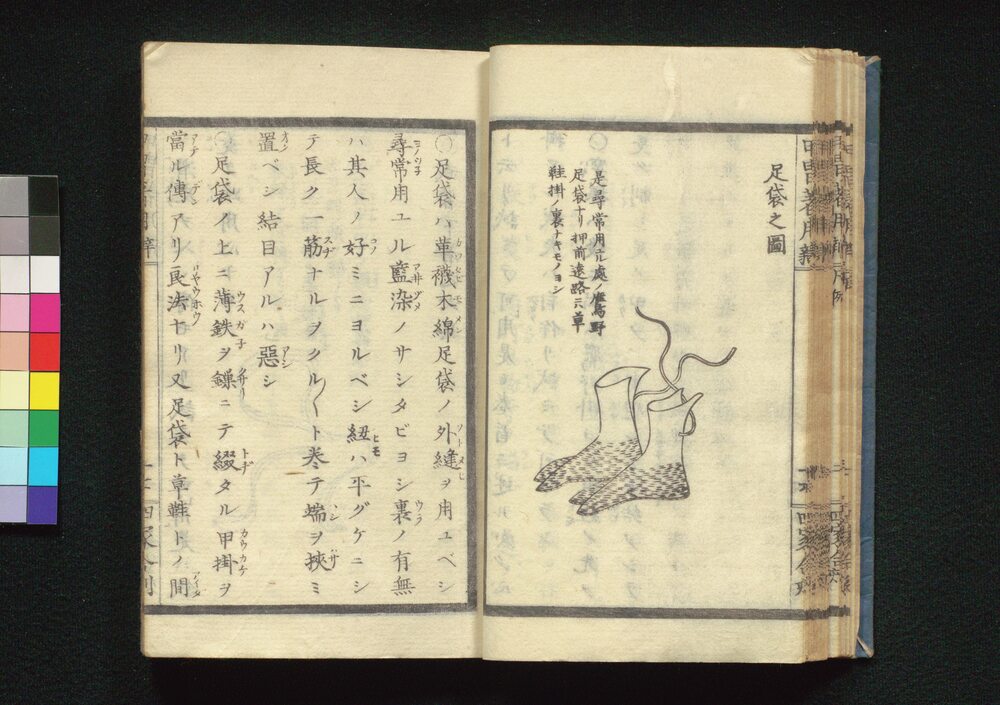 足袋之圖
是尋常用元處ノ鷹野
足袋ナリ押前遠路ニハ草
鞋掛ノ裏ナキモノヨシ
〇足袋ハ革襪木綿足袋ノ外縫ヲ用ユベシ
尋常用ユル藍染ノサシタビヨシ裏ノ有無
ハ其人ノ好ミニヨルベシ紐ハ平グケニシ
テ長ク一筋ナルヲクル〱ト巻テ端ヲ挾ミ
置ベシ結目アルハ惡シ
〇足袋ノ上ニ薄鉄ヲ鏁ニテ綴タル甲掛ヲ
當ル傳アリ良法ナリ又足袋ト草鞋トノ間